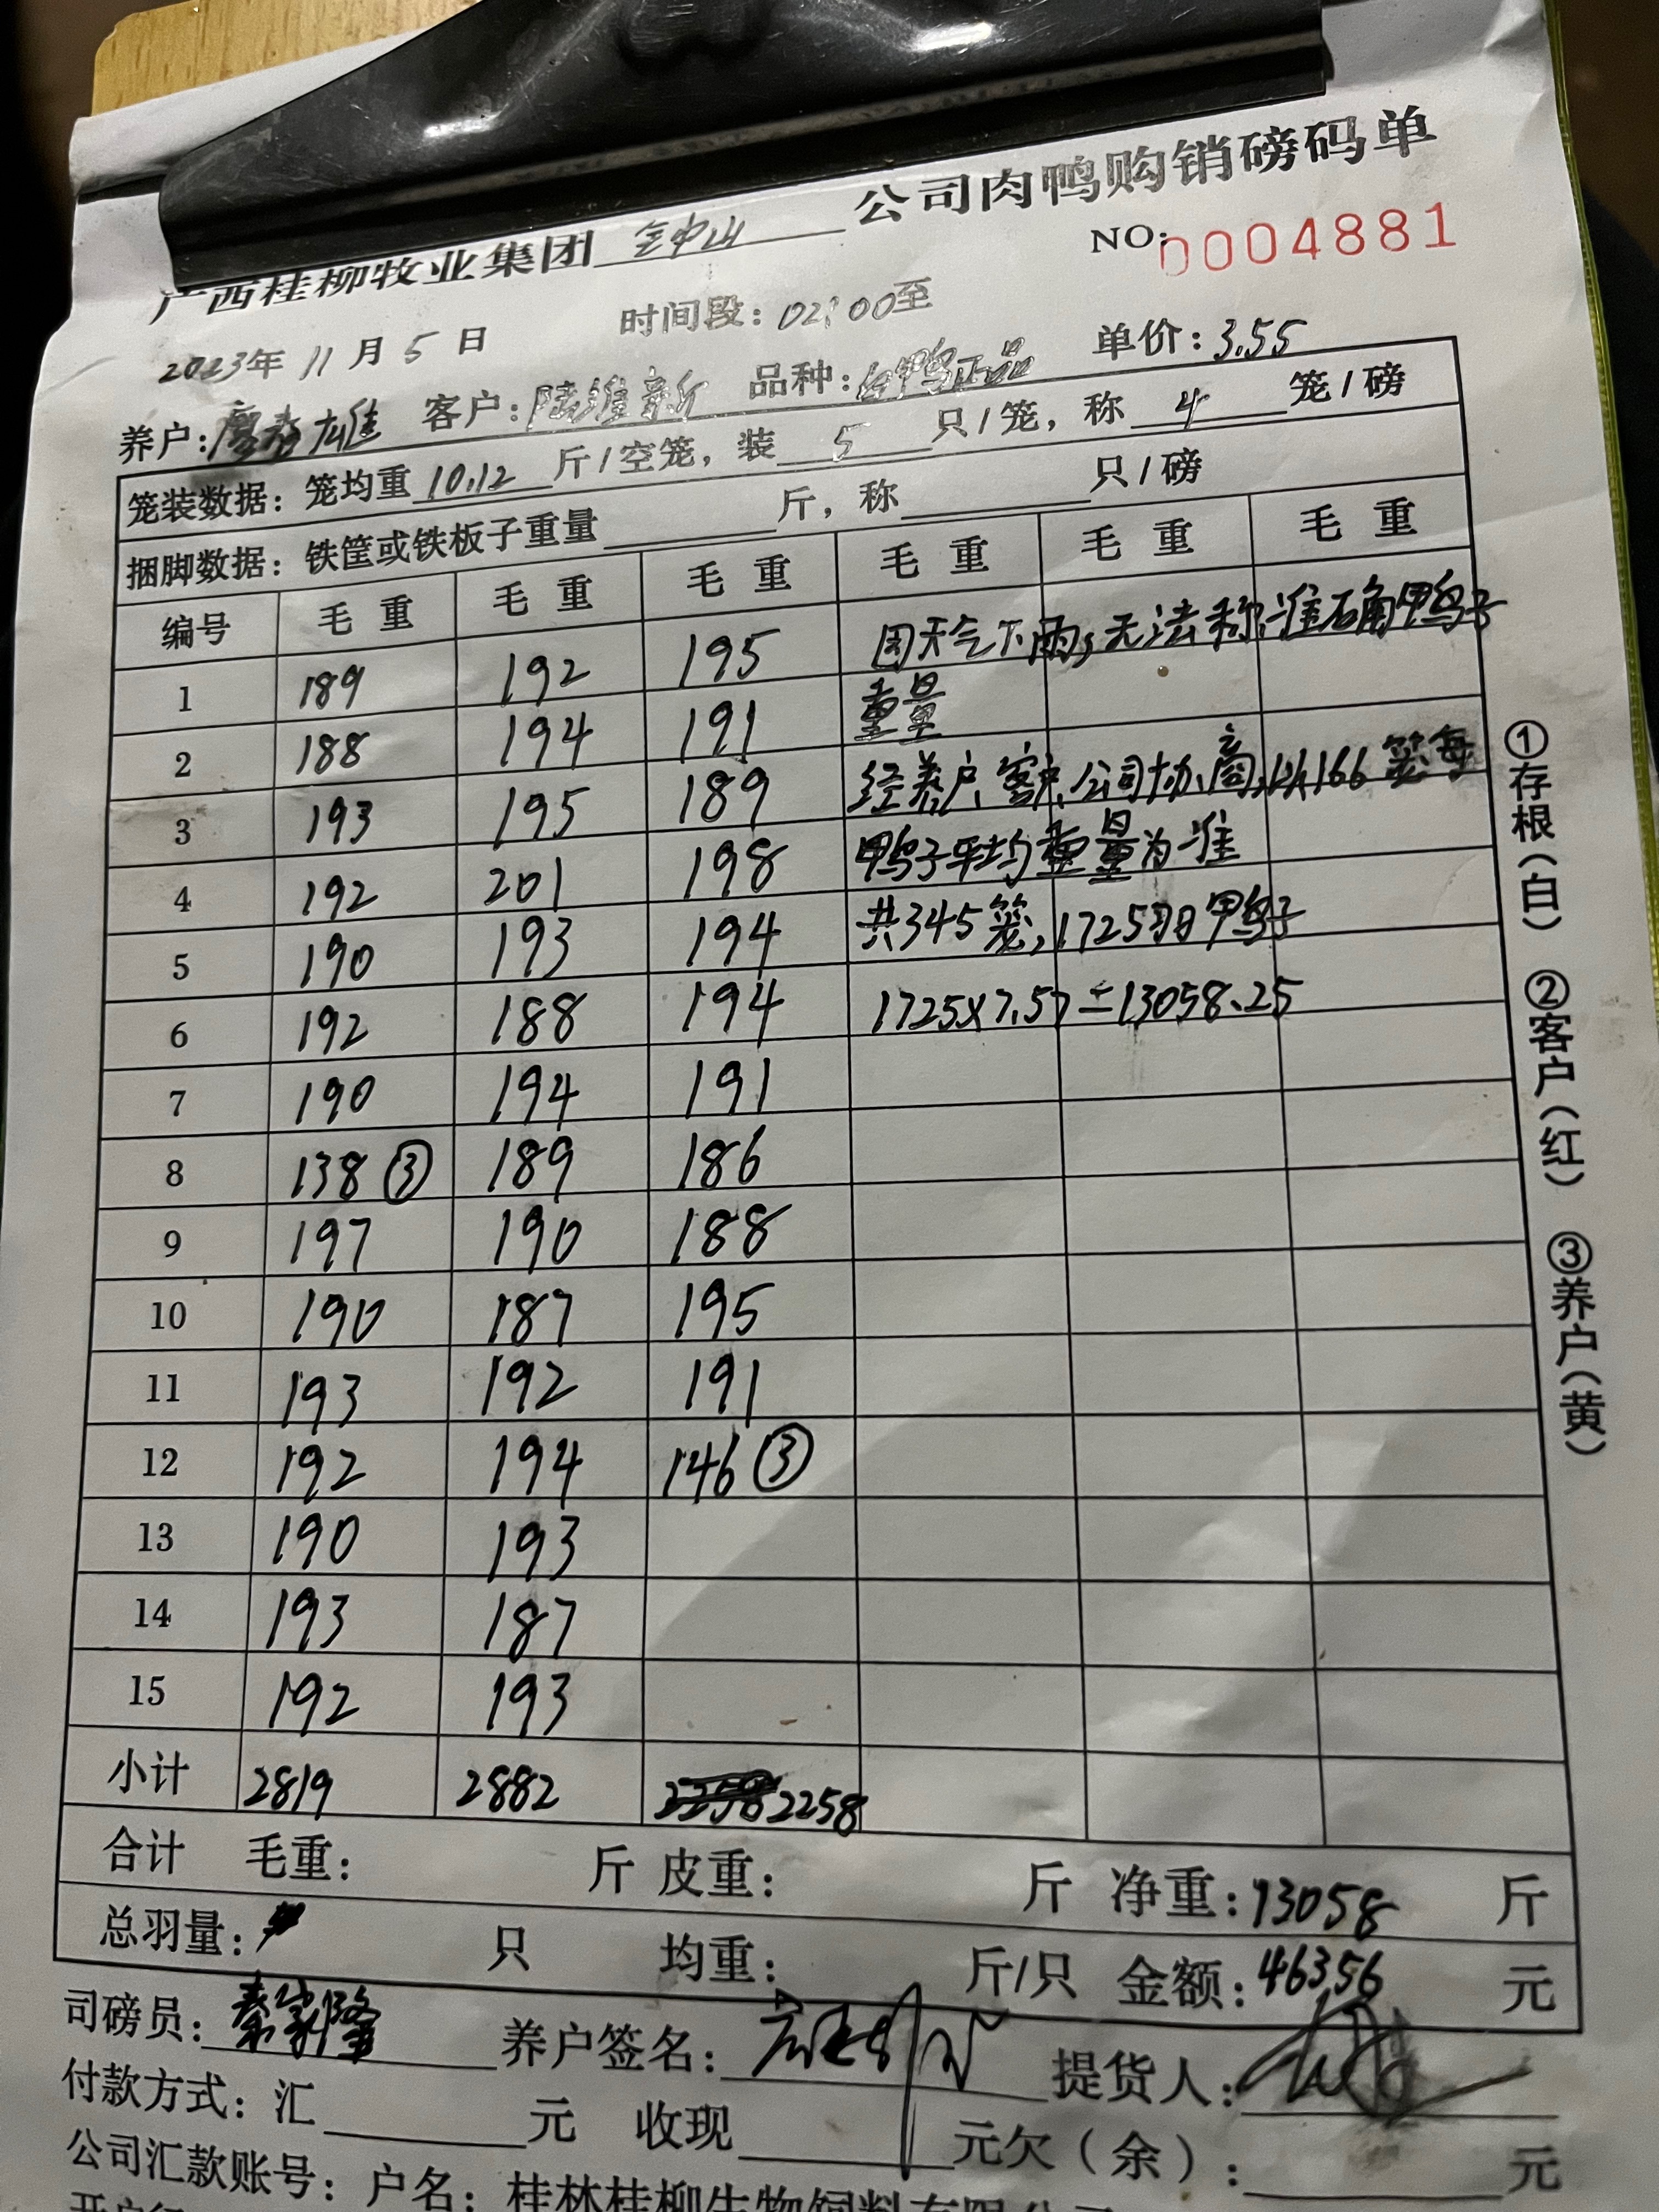 广西桂柳牧业集团 金中山 公司肉鸭购销磅码单
NO:0004881
2023年 11 月 5 日 时间段：02:00至
养户： 客户：陆维新 品种：白鸭正品 单价：3.55
笼装数据：笼均重 10.12 斤/空笼，装 5 只/笼，称 4 笼/磅
捆脚数据：铁筐或铁板子重量 斤，称 只/磅
编号 毛重 毛重 毛重 毛重 毛重 毛重
1 189 192 195 因天气下雨，无法称准确鸭子
2 188 194 191 重量
3 193 195 189 经养户、客户、公司协商，以166笼每
4 192 201 198 鸭子平均重量为准
5 190 193 194 共345笼，1725羽鸭子
6 192 188 194 1725×7.57=13058.25
7 190 194 191
8 138③ 189 186
9 197 190 188
10 190 187 195
11 193 192 191
12 192 194 146③
13 190 193
14 193 187
15 192 193
小计 2819 2882 2258
合计 毛重： 斤 皮重： 斤 净重：13058 斤
总羽量： 只 均重： 斤/只 金额：46356 元
司磅员：秦家隆 养户签名： 提货人：
付款方式：汇 元 收现 元欠（余）： 元
公司汇款账号：户名：桂林桂柳生物饲料有限公司
①存根（白） ②客户（红） ③养户（黄）